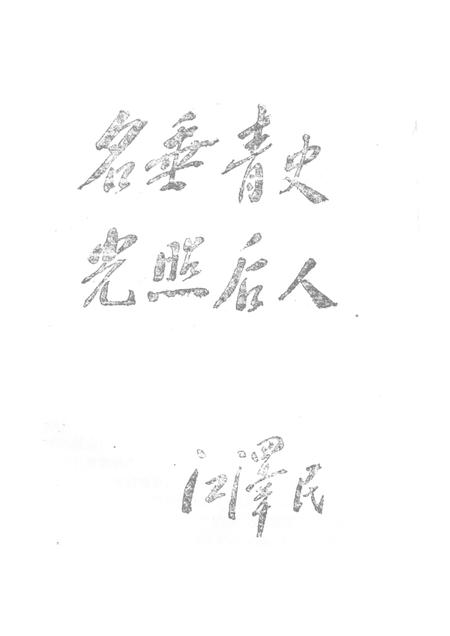 名垂青史
光照后人
江澤民